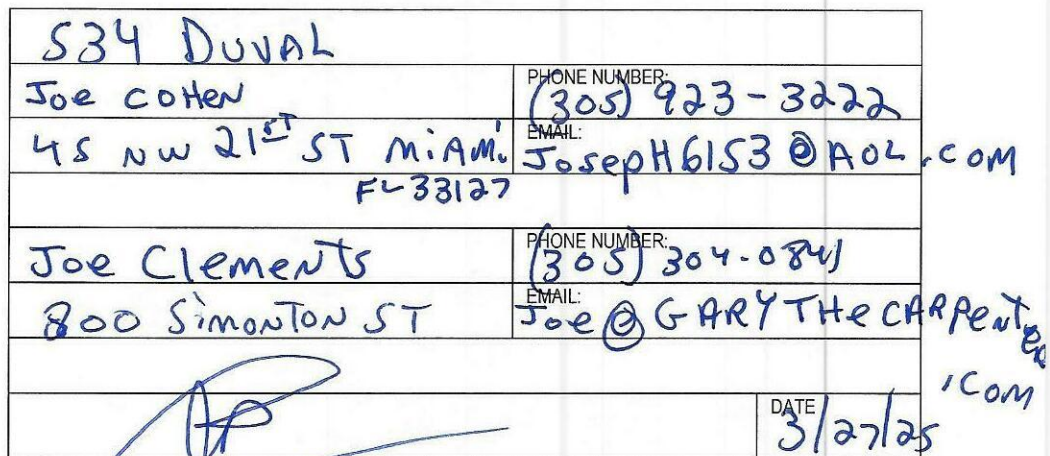 534 DUVAL
Joe COHEN
PHONE NUMBER:
(305) 923-3222
45 NW 21ST ST MiAMi
FL 33127
EMAIL:
JosepH6153@AOL.COM
Joe Clements
PHONE NUMBER:
(305) 304-0841
800 SimonTON ST
EMAIL:
Joe@GARYTHeCARPenter
.COM
DATE
3/27/25